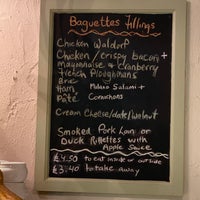 Baguettes Fillings
Chicken Waldorf
Chicken / crispy bacon +
Mayonnaise & cranberry
French Ploughmans
Brie
Ham, Milano Salami +
Pâté Cornichons
Cream Cheese/date/walnut
Smoked Pork Loin or
Duck Rillettes with
Apple Sauce
£4.50 to eat inside or outside
£3.40 to take away